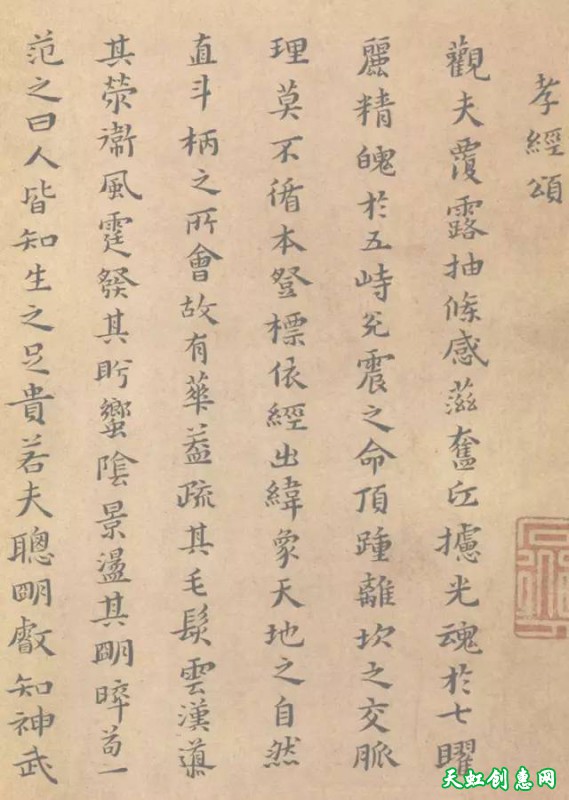 孝經頌
觀夫覆露抽條感滋奮丘攄光魂於七曜
麗精魄於五峙兌震之命頂踵離坎之交脈
理莫不循本登標依經出緯象天地之自然
直斗柄之所會故有華蓋疏其毛髮雲漢導
其滎衞風霆發其肸蠁陰景盪其明晬苟一
范之曰人皆知生之足貴若夫聰明叡知神武
天虹创惠网